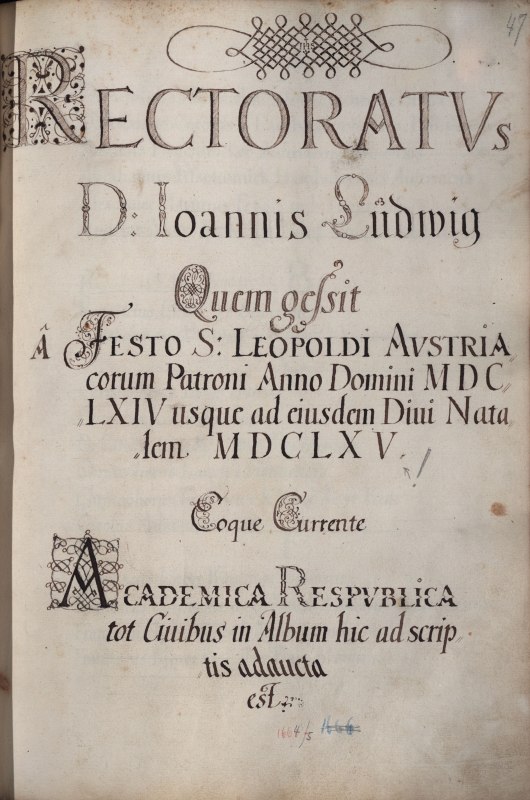 47
IHS
RECTORATVs
D: Ioannis Lüdwig
Quem gessit
Â FESTO S: LEOPOLDI AVSTRIA
corum Patroni Anno Domini MDC
LXIV usque ad eiusdem Diui Nata
lem MDCLXV.
Eoque Currente
ACADEMICA RESPVBLICA
tot Ciuibus in Album hic adscrip
tis adaucta
est.
1664/5 1666